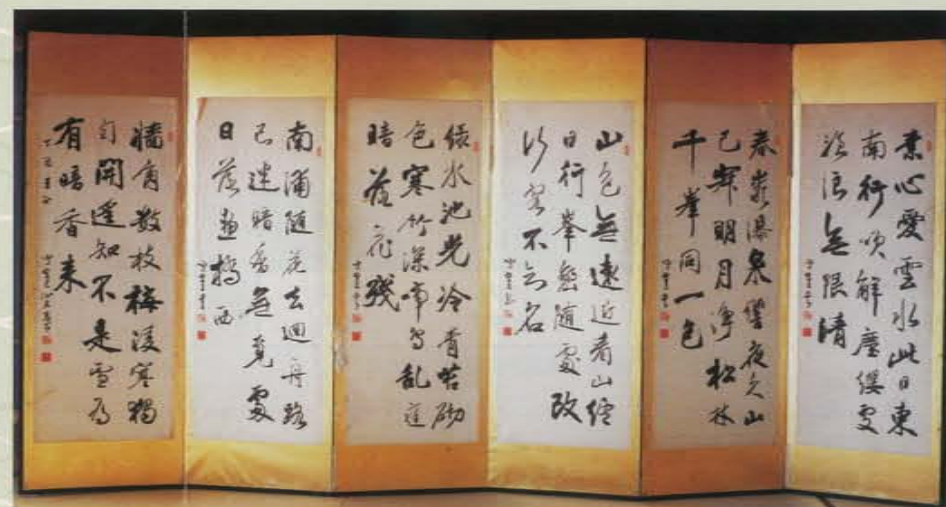 素心愛雲水此日東
南行咲解塵纓處
滄浪無限清
春巖瀑泉響夜久山
已寂明月淨松林
千峯同一色
山色無遠近看山終
日行峯巒隨處改
行客不知名
綠水池光冷青苔砌
色寒竹深啼鳥亂庭
暗落花殘
南浦隨花去迴舟路
已迷暗香無覓處
日落畫橋西
牆角數枝梅凌寒獨
自開遙知不是雪為
有暗香來